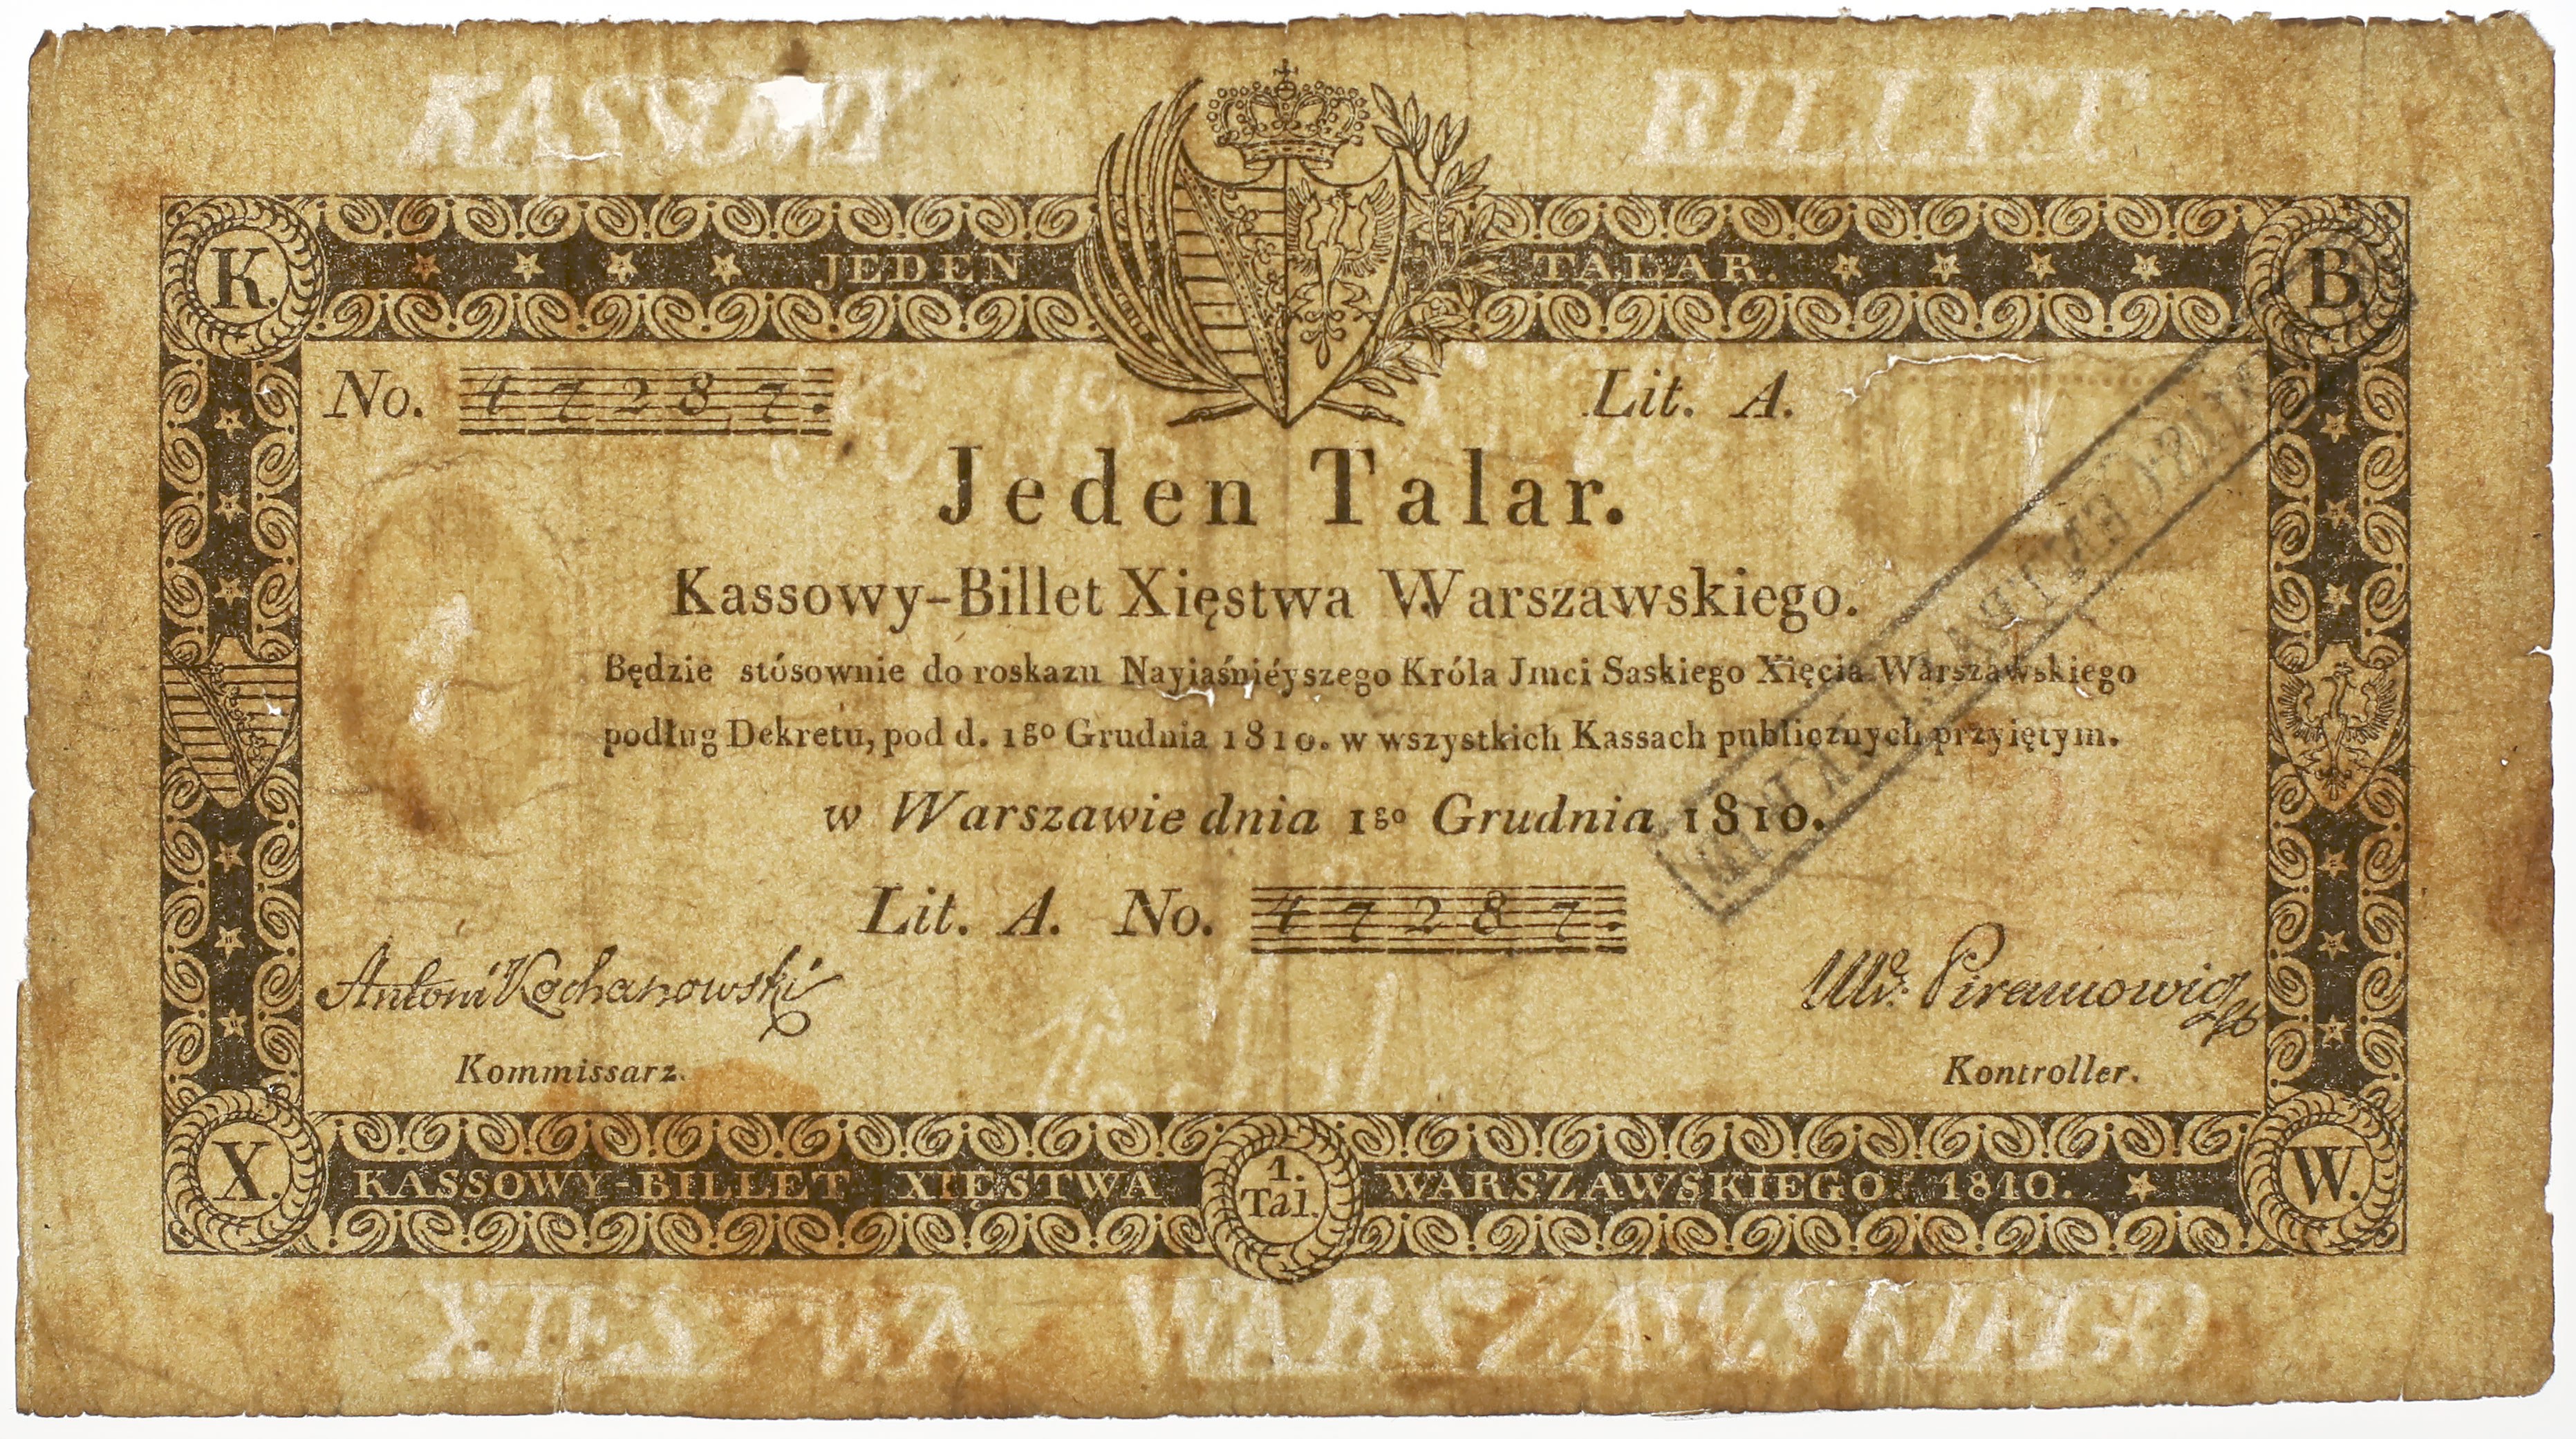 KASSOWY BILLET
K. JEDEN TALAR. B.
No. 47287. Lit. A.
Jeden Talar.
Kassowy-Billet Xięstwa Warszawskiego.
Będzie stósownie do roskazu Nayiaśniéyszego Króla Jmci Saskiego Xięcia Warszawskiego
podług Dekretu, pod d. 1go Grudnia 1810. w wszystkich Kassach publicznych przyiętym.
w Warszawie dnia 1go Grudnia 1810.
Lit. A. No. 47287.
Antoni Kochanowski
Kommissarz. Kontroller.
X. KASSOWY-BILLET XIĘSTWA 1. Tal. WARSZAWSKIEGO. 1810. W.
XIESTWA WARSZAWSKIEGO